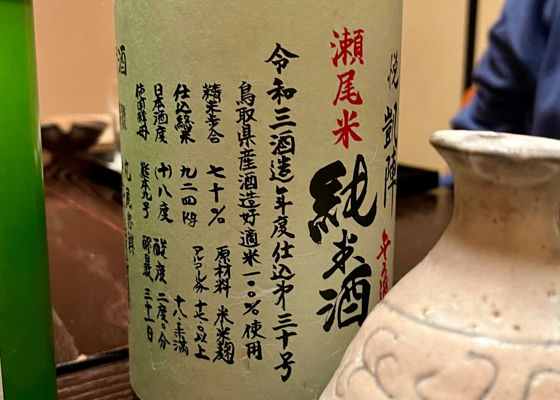 悦凱陣
瀬尾米
純米酒
令和三酒造年度仕込第三十号
鳥取県産酒造好適米一〇〇%使用
精米歩合 七十% 原材料 米米麹
仕込総米 九二四kg アルコール分 十七・〇以上十八・〇未満
日本酒度 (+)八度 酸度 二度〇分
使用酵母 熊本九号 醪日数 三十一日